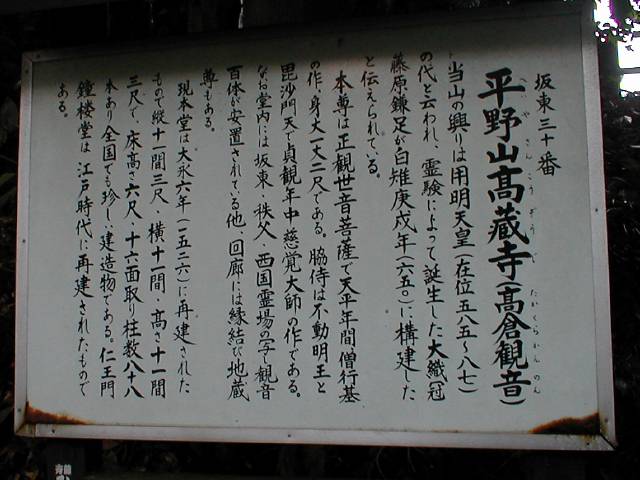 坂東三十番
平野山髙蔵寺(髙倉観音)
へいやさんこうぞうじ たかくらかんのん
当山の興りは用明天皇(在位五八五〜八七)
の代と云われ、霊験によって誕生した大織冠
藤原鎌足が白雉庚戌年(六五〇)に構建した
と伝えられている。
本尊は正観世音菩薩で天平年間僧行基
の作、身丈一丈二尺である。脇侍は不動明王と
毘沙門天で貞観年中慈覚大師の作である。
なお堂内には坂東・秩父・西国霊場の写し観音
百体が安置されている他、回廊には縁結び地蔵
尊もある。
現本堂は大永六年(一五二六)に再建された
もので縦十一間三尺、横十一間、高さ十一間
三尺で、床高さ六尺、十六面取り柱数八十八
本あり全国でも珍しい建造物である。仁王門
鐘楼堂は江戸時代に再建されたもので
ある。